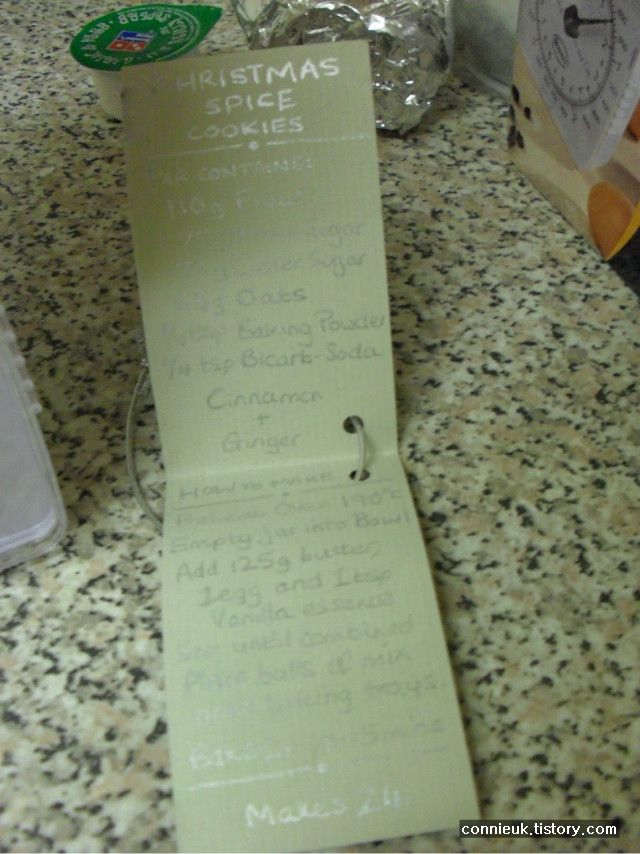 CHRISTMAS
SPICE
COOKIES
JAR CONTAINS:
110g Flour
Sugar
Caster Sugar
Oats
tsp Baking Powder
1/4 tsp Bicarb-Soda
Cinnamon
+
Ginger
HOW TO MAKE
Preheat Oven 190°c
Empty jar into Bowl
Add 125g butter,
1egg and 1tsp
Vanilla essence
Stir until combined
balls of mix
baking trays.
mins
Makes 24
connieuk.tistory.com